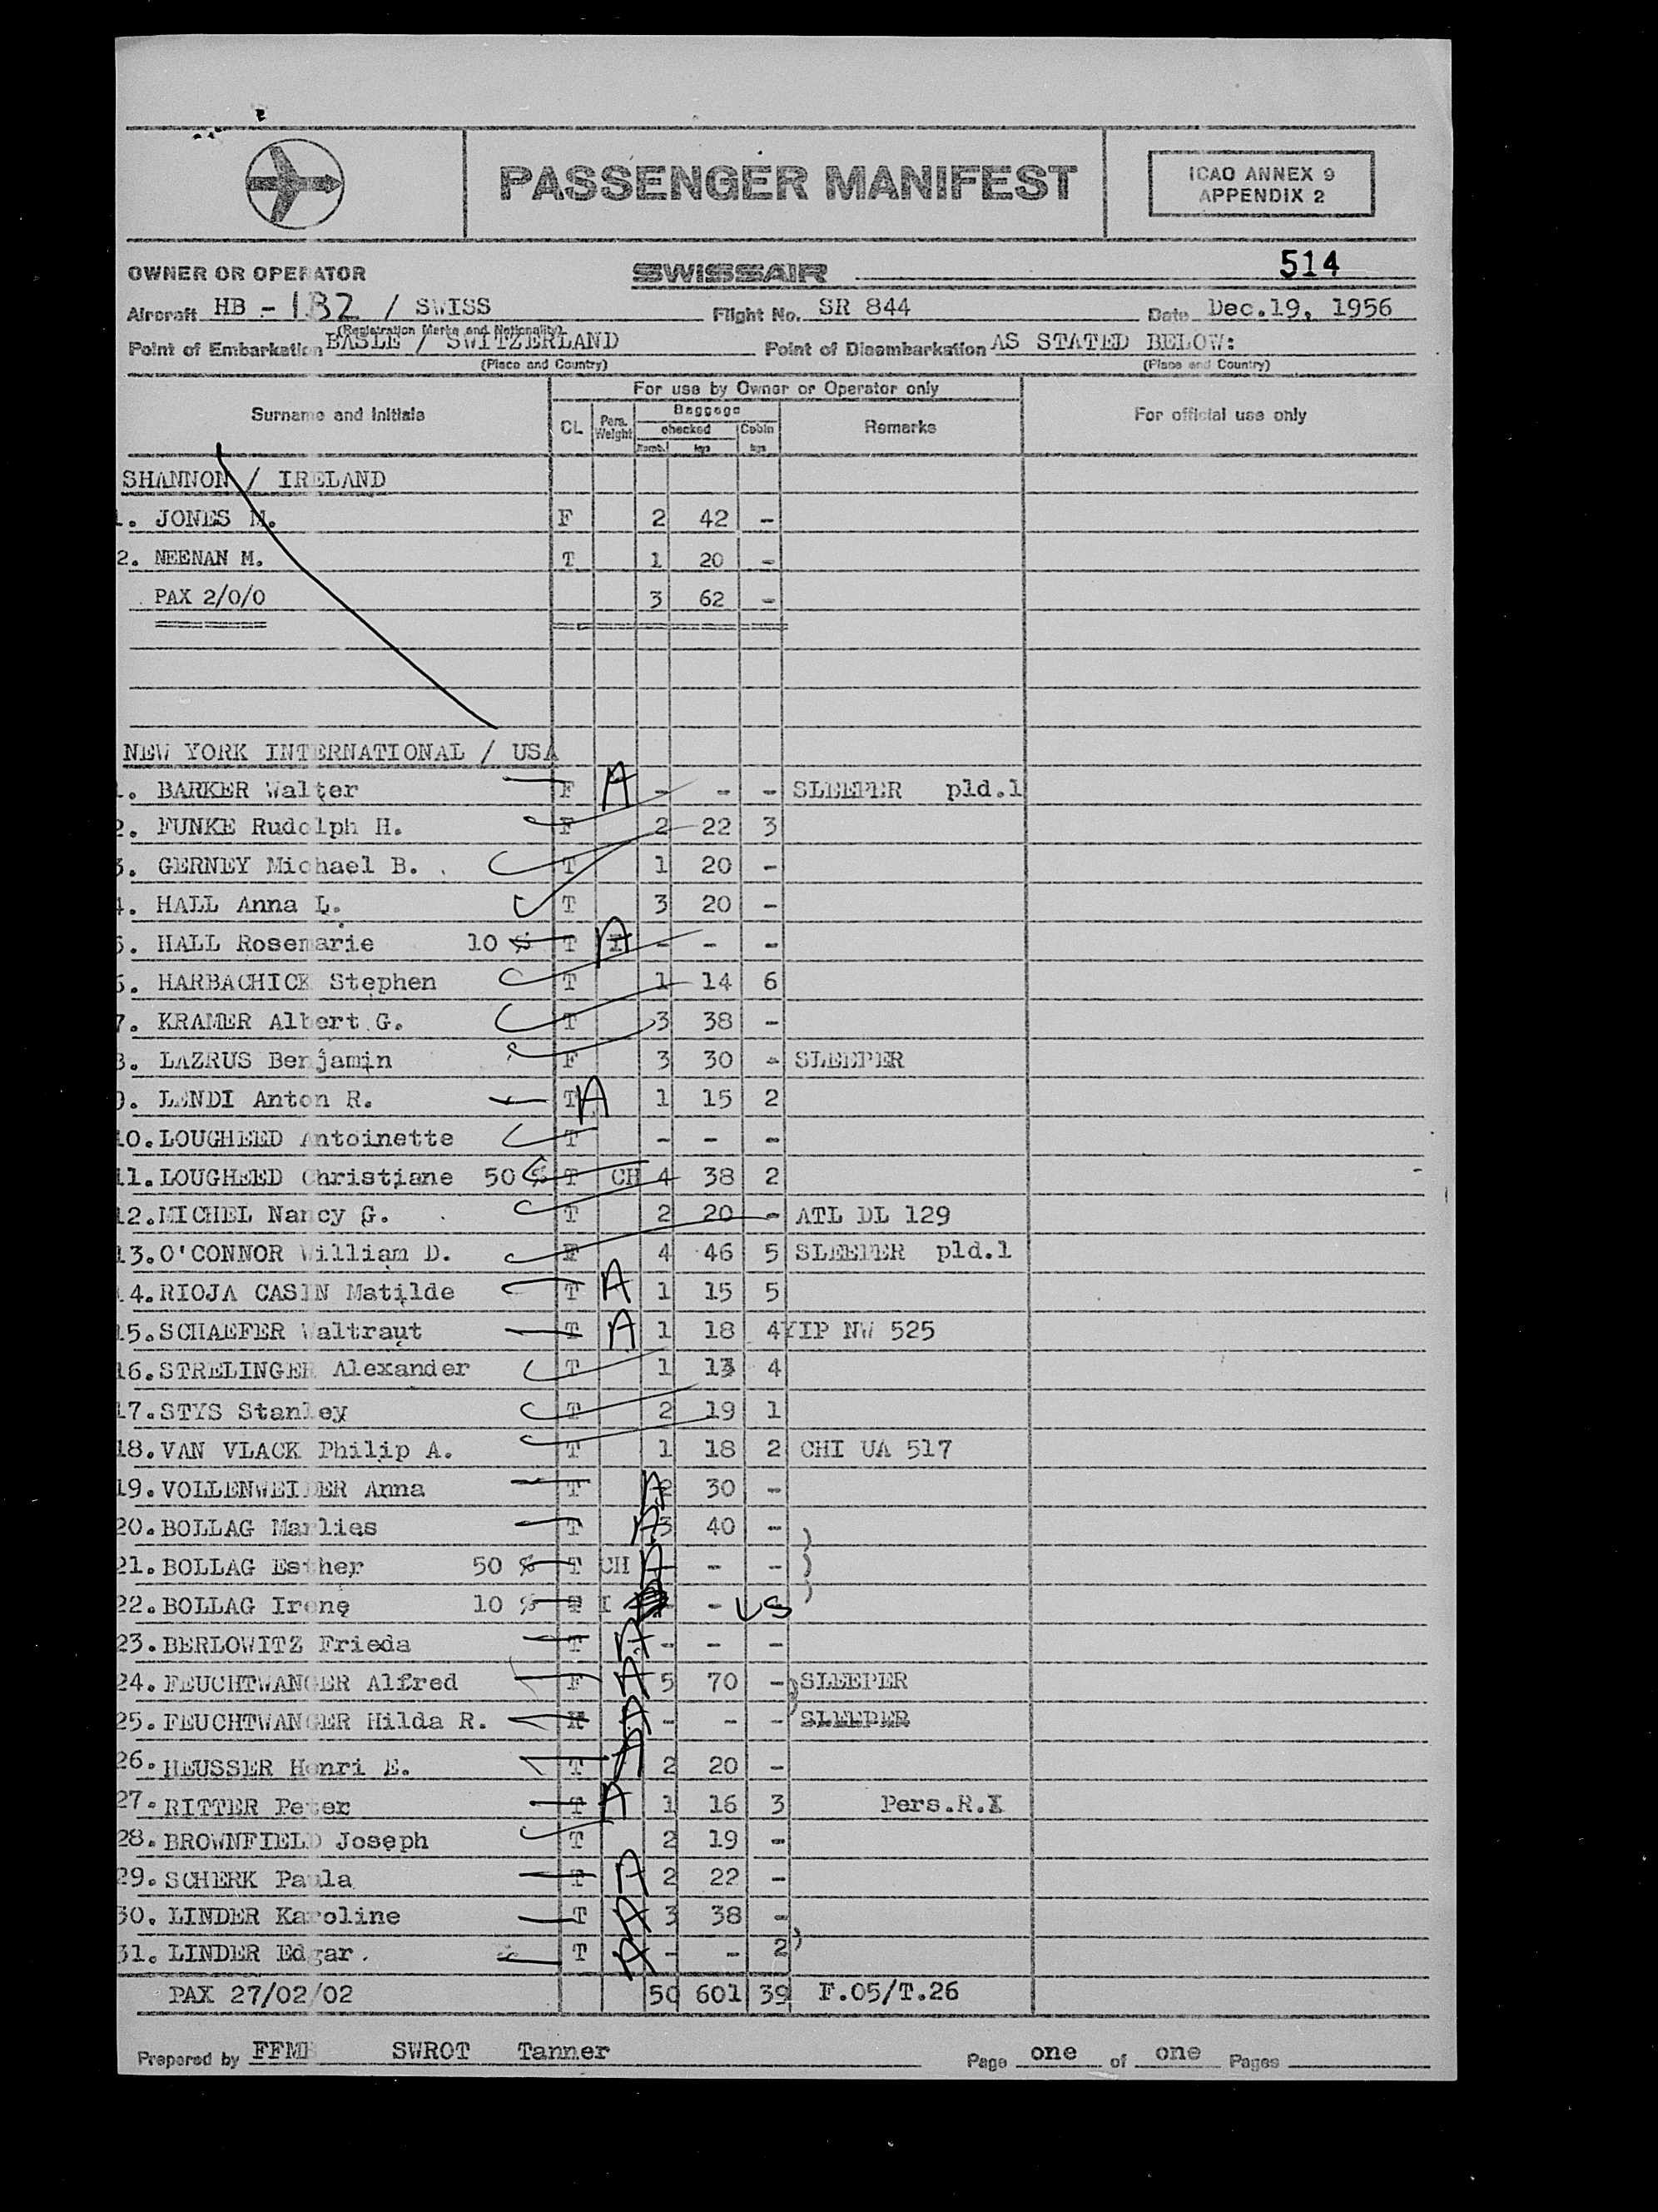 PASSENGER MANIFEST
ICAO ANNEX 9
APPENDIX 2
OWNER OR OPERATOR SWISSAIR 514
Aircraft HB - IB2 / SWISS Flight No. SR 844 Date Dec.19, 1956
(Registration Marks and Nationality)
Point of Embarkation BASLE / SWITZERLAND Point of Disembarkation AS STATED BELOW:
(Place and Country) (Place and Country)
For use by Owner or Operator only
Surname and initials CL Pers. Weight Baggage checked Numb. kgs Cabin kgs Remarks For official use only
SHANNON / IRELAND
1. JONES M. F 2 42 -
2. NEENAN M. T 1 20 -
PAX 2/0/0 3 62 -
NEW YORK INTERNATIONAL / USA
1. BARKER Walter F A - - - SLEEPER pld.1
2. FUNKE Rudolph H. F 2 22 3
3. GERNEY Michael B. T 1 20 -
4. HALL Anna L. T 3 20 -
5. HALL Rosemarie 10 % T I A - - -
6. HARBACHICK Stephen T 1 14 6
7. KRAMER Albert G. T 3 38 -
8. LAZRUS Benjamin F 3 30 - SLEEPER
9. LENDI Anton R. T A 1 15 2
10. LOUGHEED Antoinette T - - -
11. LOUGHEED Christiane 50 % T CH 4 38 2
12. MICHEL Nancy G. T 2 20 - ATL DL 129
13. O'CONNOR William D. F 4 46 5 SLEEPER pld.1
14. RIOJA CASIN Matilde T A 1 15 5
15. SCHAEFER Waltraut T A 1 18 4 YIP NW 525
16. STRELINGER Alexander T 1 13 4
17. STYS Stanley T 2 19 1
18. VAN VLACK Philip A. T 1 18 2 CHI UA 517
19. VOLLENWEIDER Anna T A 2 30 -
20. BOLLAG Marlies T A 3 40 - )
21. BOLLAG Esther 50 % T CH A - - - )
22. BOLLAG Irene 10 % T I - - US )
23. BERLOWITZ Frieda T A - - -
24. FEUCHTWANGER Alfred F A 5 70 - ) SLEEPER
25. FEUCHTWANGER Hilda R. A - - - SLEEPER
26. HEUSSER Henri E. T A 2 20 -
27. RITTER Peter T A 1 16 3 Pers.R.I
28. BROWNFIELD Joseph T 2 19 -
29. SCHERK Paula T A 2 22 -
30. LINDER Karoline T A 3 38 -
31. LINDER Edgar. T A - - 2 )
PAX 27/02/02 50 601 39 F.05/T.26
Prepared by SWROT Tanner Page one of one Pages